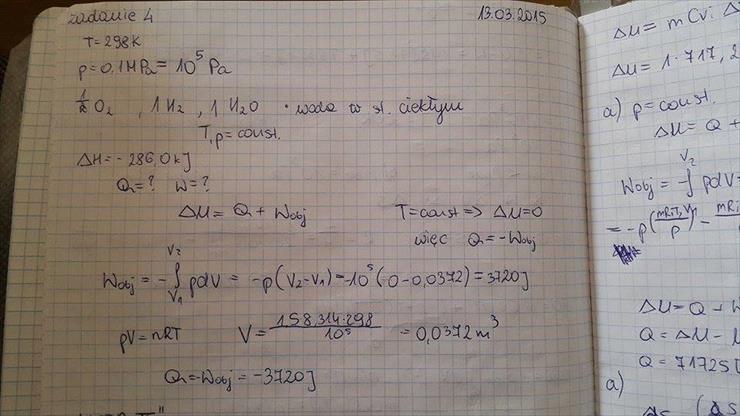 zadanie 4
13.03.2015
T = 298K
p = 0,1MPa = 10⁵ Pa
½ O₂ , 1 H₂ , 1 H₂O • woda w st. ciekłym
T, p = const.
ΔH = -286,0 kJ
Q = ? W = ?
ΔU = Q + Wobj
T = const => ΔU = 0
więc Q = -Wobj
Wobj = -∫ᵥ₁ⱽ² pdV = -p(V₂-V₁) = -10⁵(-0-0,0372) = 3720J
pV = nRT V = 1,5 8,314·298 / 10⁵ = 0,0372 m³
Q = -Wobj = -3720J
ΔU = mCv·Δ
ΔU = 1·717,2
a) p = const.
ΔU = Q +
Wobj = -∫ⱽ² pdV
= -p(
ΔU = Q + W
Q = ΔU -
Q = 71725
a)